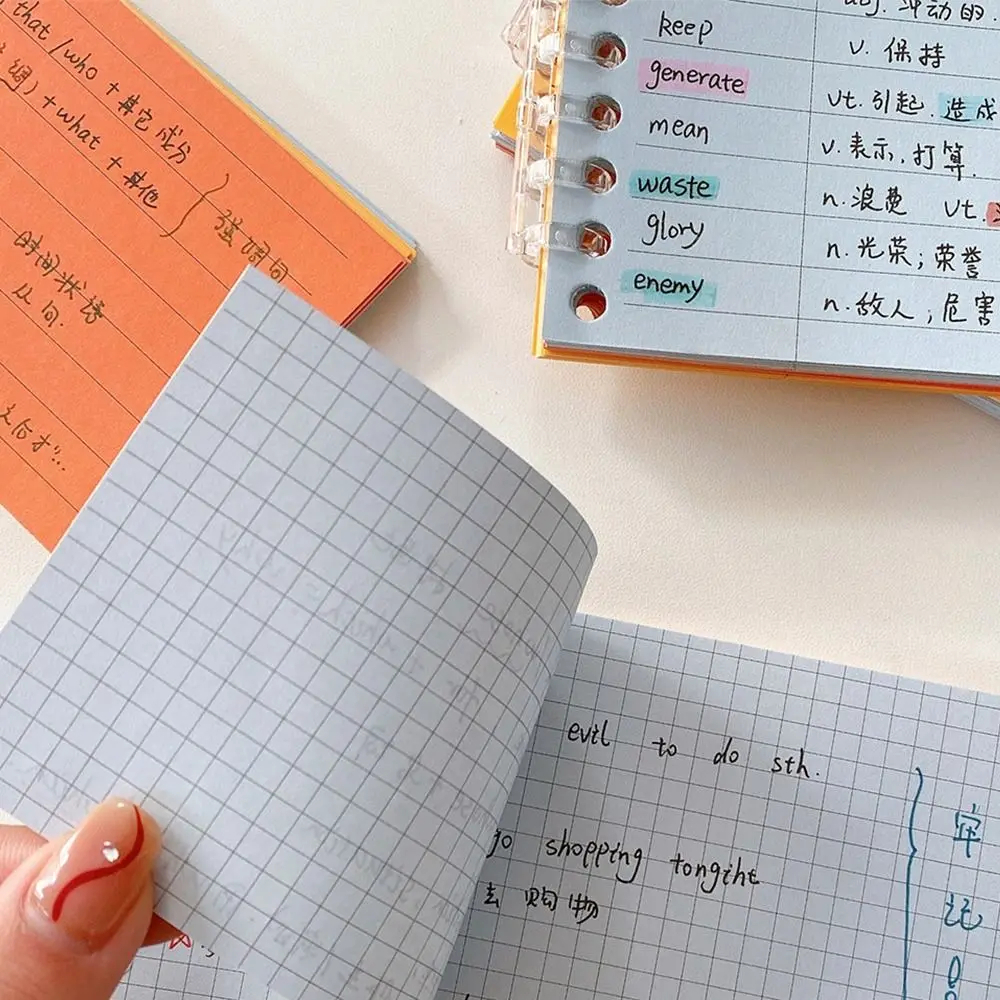 that/who + 其它成分
+ what + 其他
强调
时间状语
从间.
keep
v. 保持
generate
vt. 引起. 造成
mean
v. 表示, 打算.
waste
n. 浪费 vt.
glory
n. 光荣; 荣誉
enemy
n. 敌人; 危害
adj. 冲动的.
evil to do sth.
go shopping tongiht
去购物
牢
记